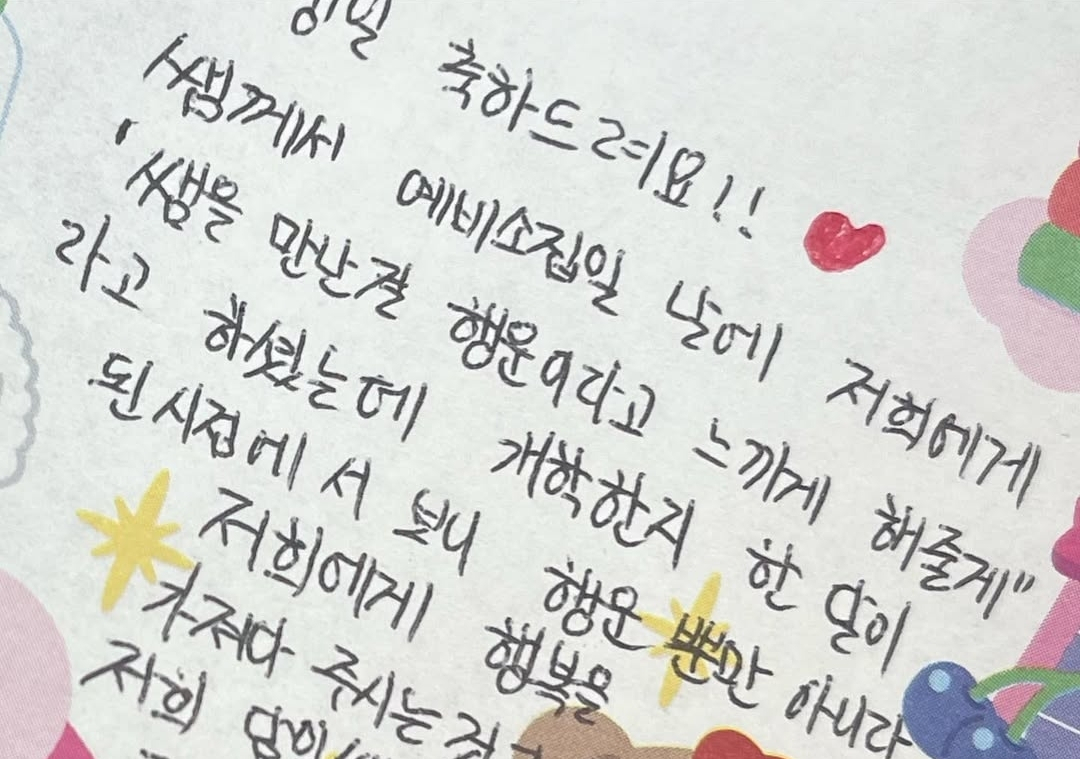 축하드려요!!
쌤께서 예비소집일 날에 저희에게
'쌤을 만난걸 행운이라고 느끼게 해줄게"
라고 하셨는데 개학한지 한 달이
된 시점에서 보니 행운 뿐만 아니라
저희에게 행복을
가져다 주시는
저희